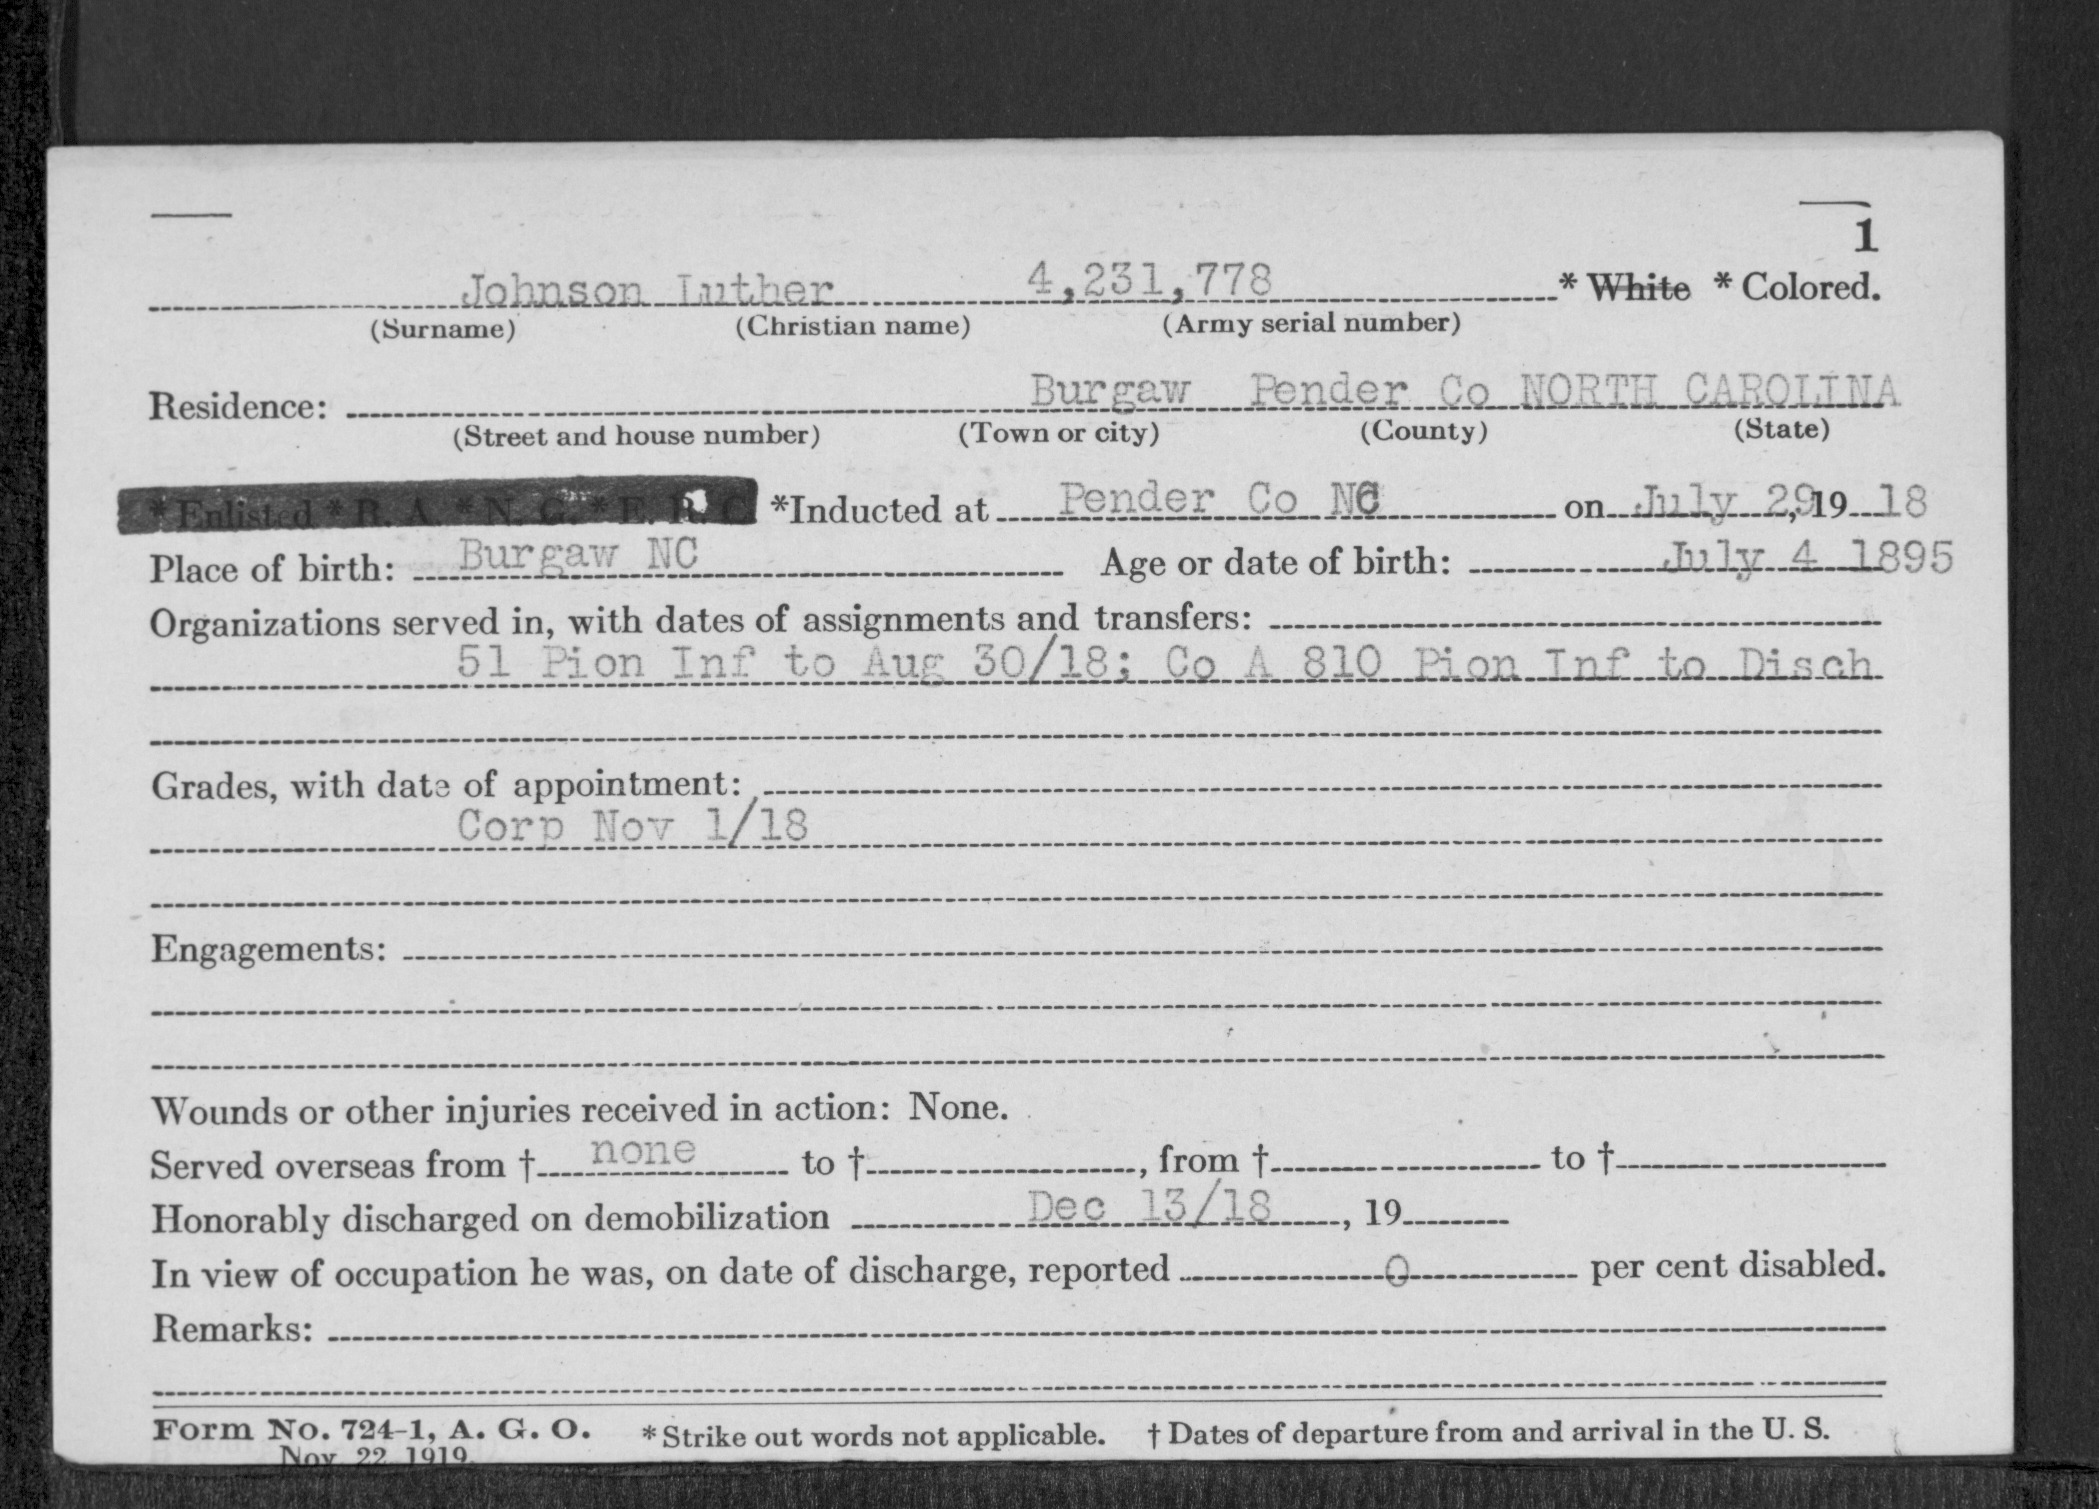 1
Johnson Luther 4,231,778 * White * Colored.
(Surname) (Christian name) (Army serial number)
Residence: Burgaw Pender Co NORTH CAROLINA
(Street and house number) (Town or city) (County) (State)
* Enlisted * R. A. * N. G. * E. R. C. *Inducted at Pender Co NC on July 29, 19 18
Place of birth: Burgaw NC Age or date of birth: July 4 1895
Organizations served in, with dates of assignments and transfers:
51 Pion Inf to Aug 30/18; Co A 810 Pion Inf to Disch
Grades, with date of appointment:
Corp Nov 1/18
Engagements:
Wounds or other injuries received in action: None.
Served overseas from † none to †, from † to †
Honorably discharged on demobilization Dec 13/18, 19
In view of occupation he was, on date of discharge, reported 0 per cent disabled.
Remarks:
Form No. 724-1, A. G. O. * Strike out words not applicable. † Dates of departure from and arrival in the U. S.
Nov. 22, 1919.